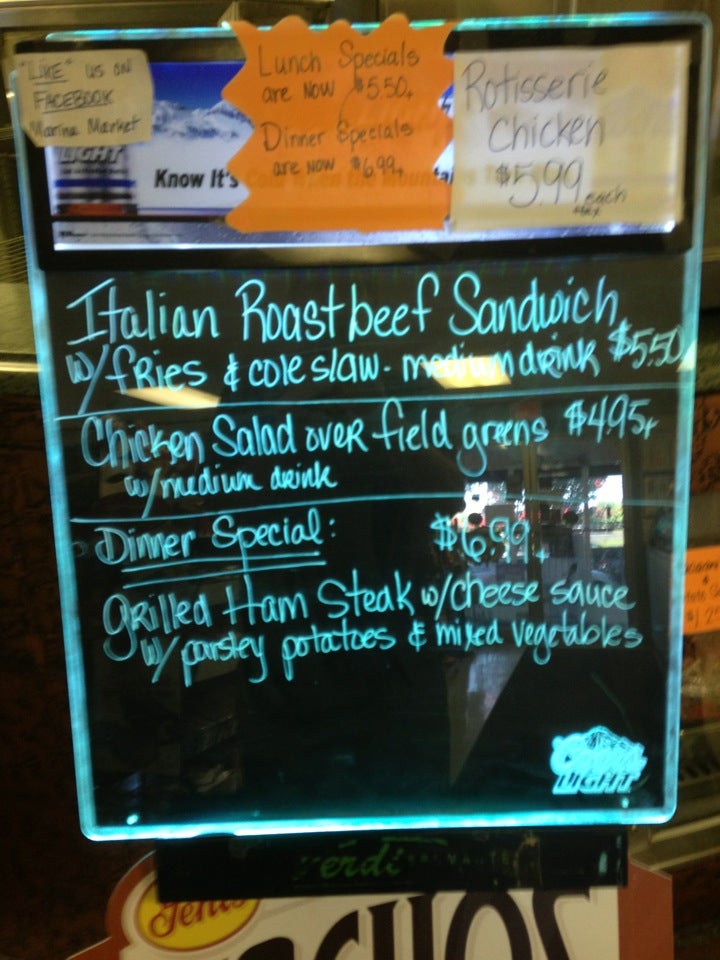 "LIKE" us on
FACEBOOK
Marina Market
LIGHT
Know It's
Lunch Specials
are now $5.50+
Dinner Specials
are now $6.99+
Rotisserie
Chicken
$5.99 each
Italian Roastbeef Sandwich
w/fries & coleslaw - medium drink $5.50
Chicken Salad over field greens $4.95+
w/medium drink
Dinner Special: $6.99+
Grilled Ham Steak w/cheese sauce
w/ parsley potatoes & mixed vegetables
Coors
LIGHT